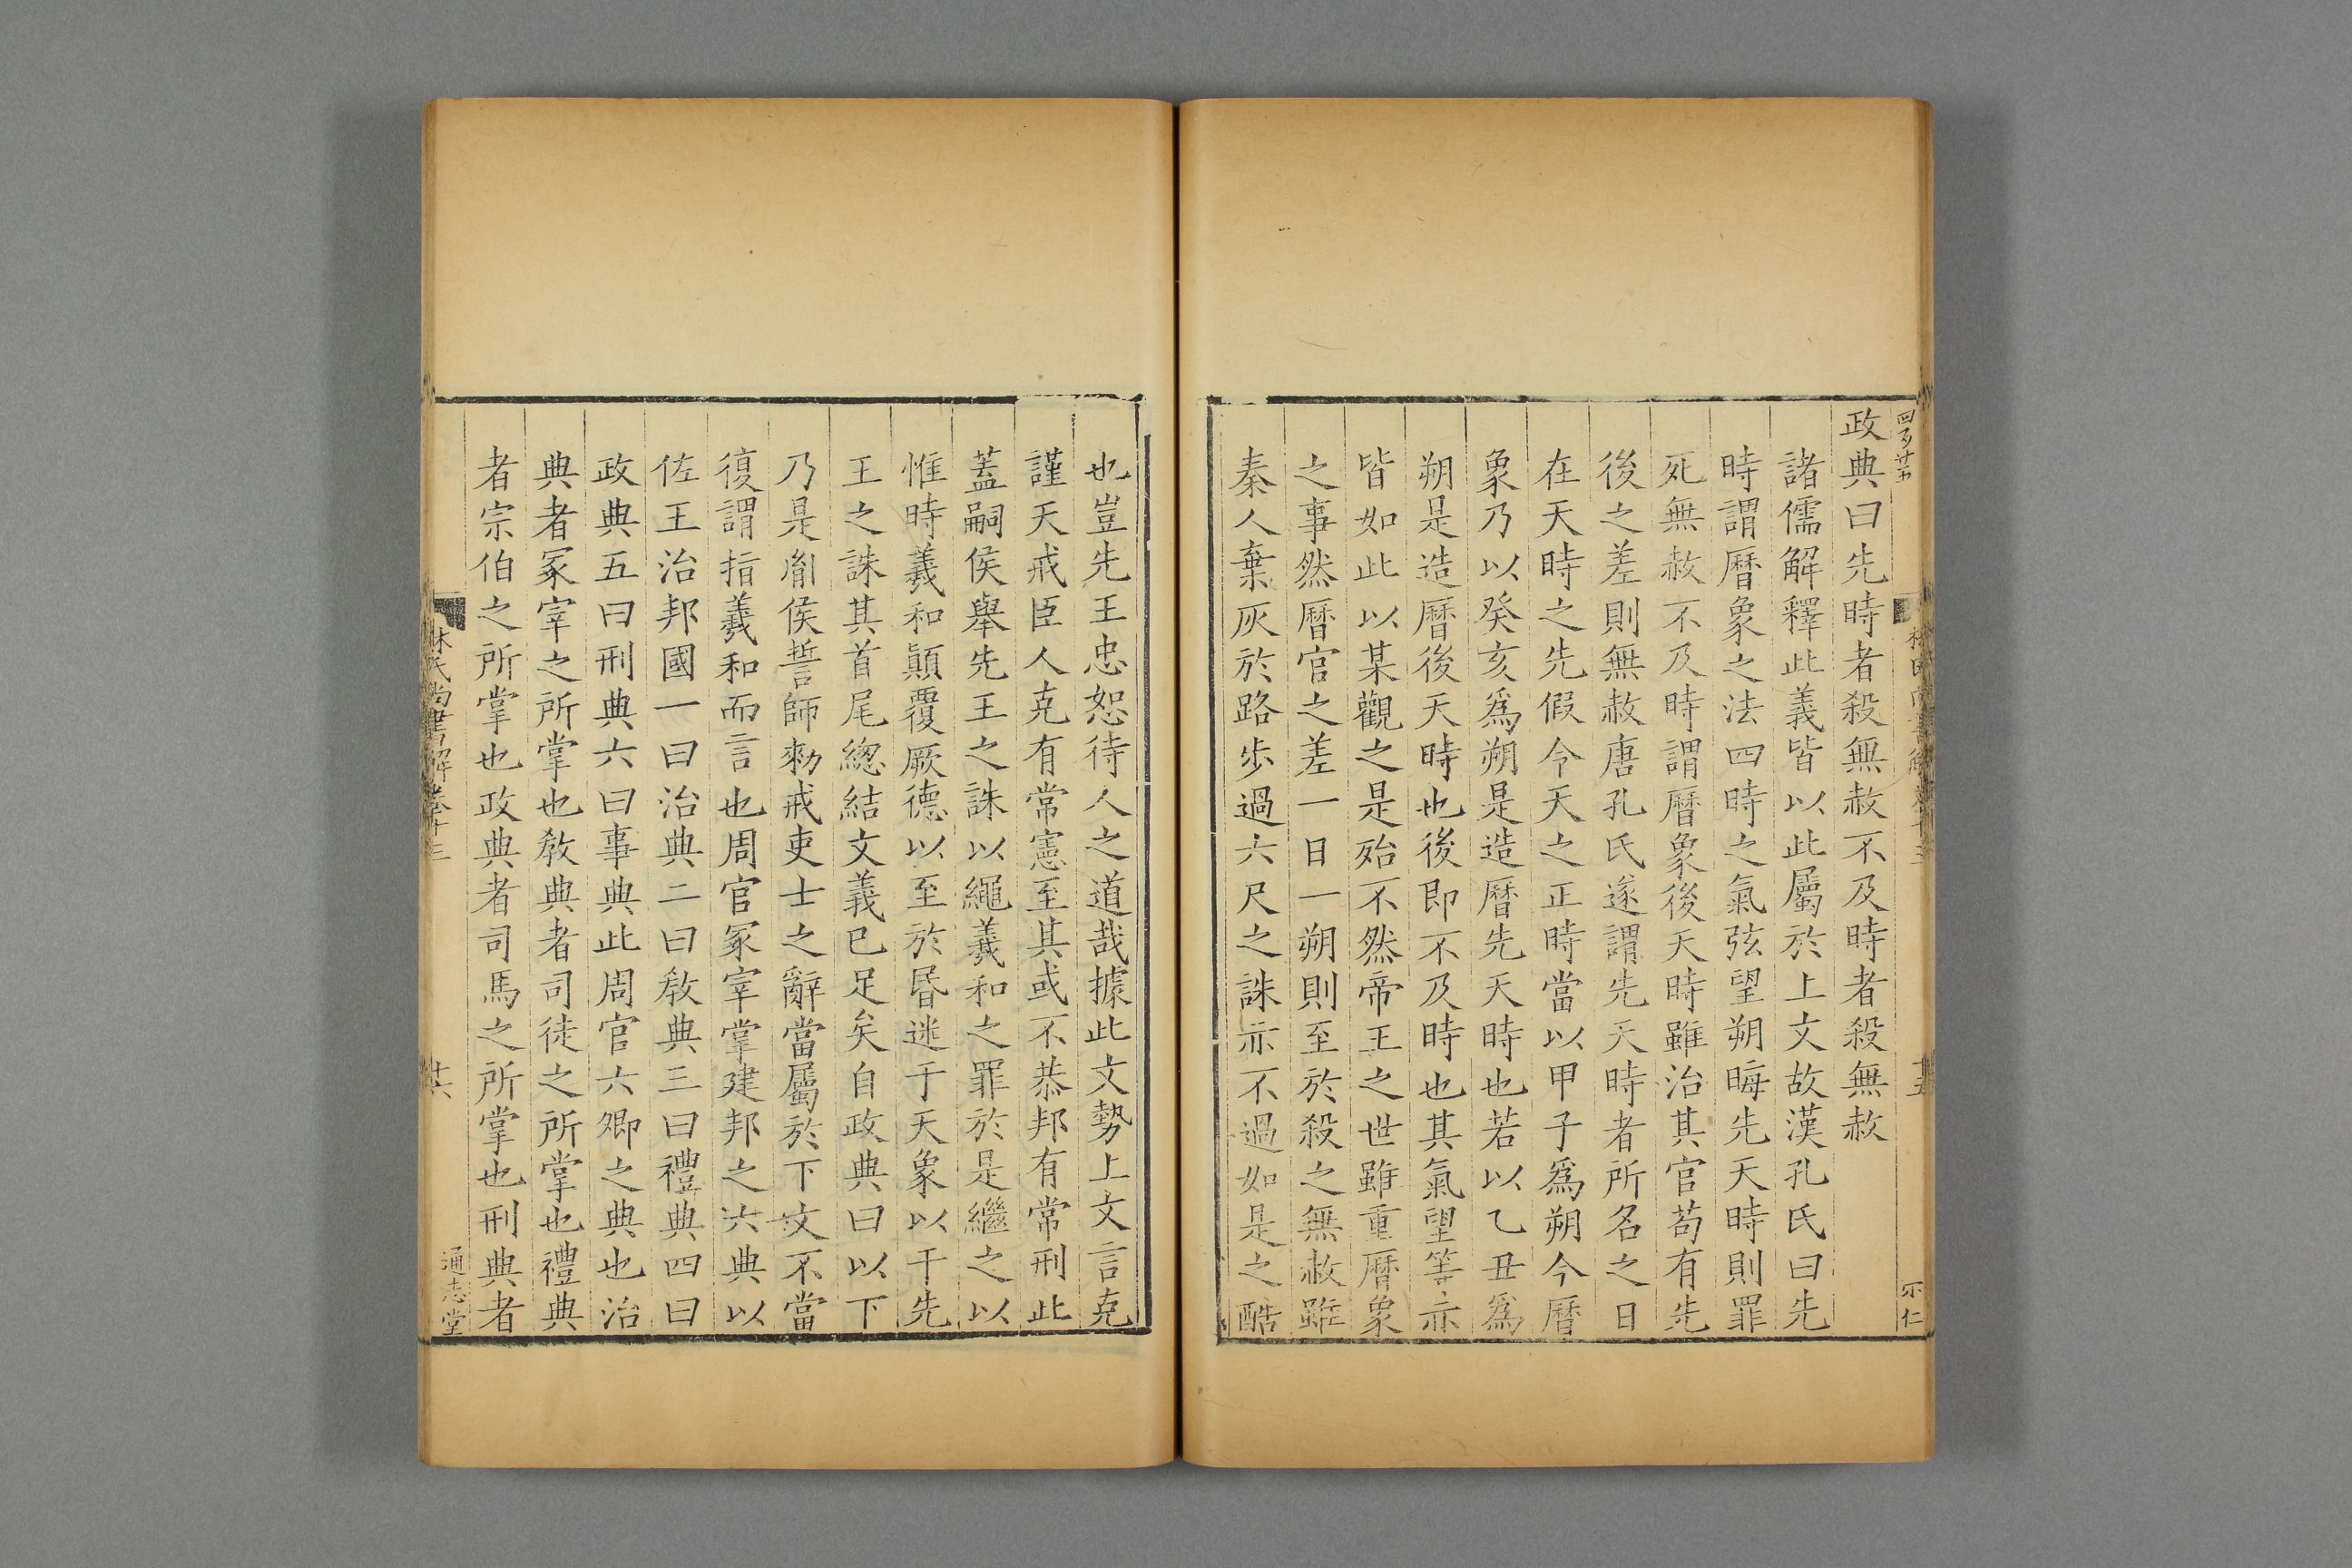 政典曰先時者殺無赦不及時者殺無赦
諸儒解釋此義皆以此屬於上文故漢孔氏曰先
時謂曆象之法四時之氣弦望朔晦先天時則罪
死無赦不及時謂曆象後天時雖治其官苟有先
後之差則無赦唐孔氏遂謂先天時者所名之日
在天時之先假令天之正時當以甲子爲朔今曆
象乃以癸亥爲朔是造曆先天時也若以乙丑爲
朔是造曆後天時也後即不及時也其氣望等亦
皆如此以某觀之是殆不然帝王之世雖重曆象
之事然曆官之差一日一朔則至於殺之無赦雖
秦人棄灰於路步過六尺之誅亦不過如是之酷
也豈先王忠恕待人之道哉據此文勢上文言克
謹天戒臣人克有常憲至其或不恭邦有常刑此
蓋嗣侯舉先王之誅以繩羲和之罪於是繼之以
惟時羲和顚覆厥德以至於昏迷于天象以干先
王之誅其首尾總結文義已足矣自政典曰以下
乃是胤侯誓師勑戒吏士之辭當屬於下文不當
復謂指羲和而言也周官冢宰掌建邦之六典以
佐王治邦國一曰治典二曰敎典三曰禮典四曰
政典五曰刑典六曰事典此周官六卿之典也治
典者冢宰之所掌也敎典者司徒之所掌也禮典
者宗伯之所掌也政典者司馬之所掌也刑典者
林氏尚書解卷十三
廿六
通志堂